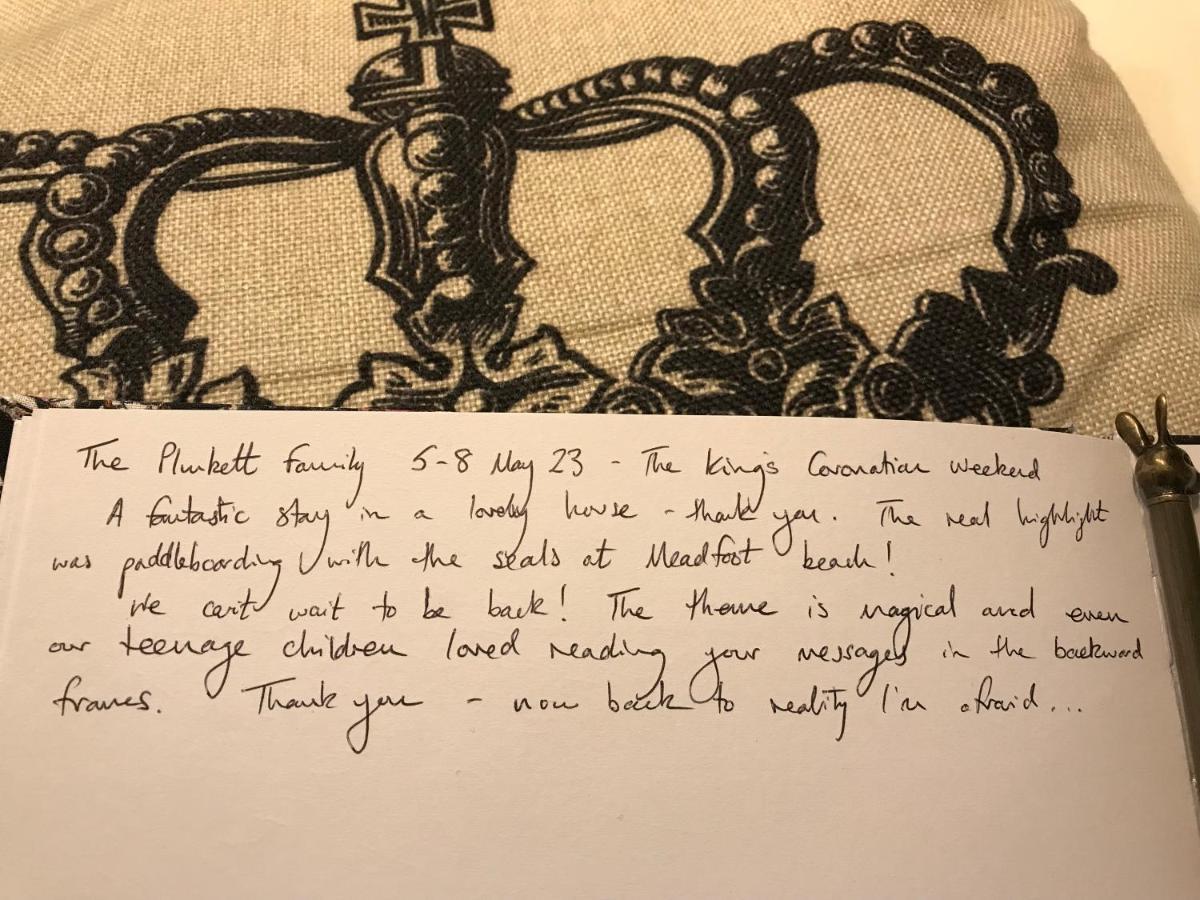 The Plunkett Family 5-8 May 23 - The King's Coronation Weekend
A fantastic stay in a lovely house - thank you. The real highlight
was paddleboarding with the seals at Meadfoot beach!
We can't wait to be back! The theme is magical and even
our teenage children loved reading your messages in the backward
frames. Thank you - now back to reality I'm afraid...